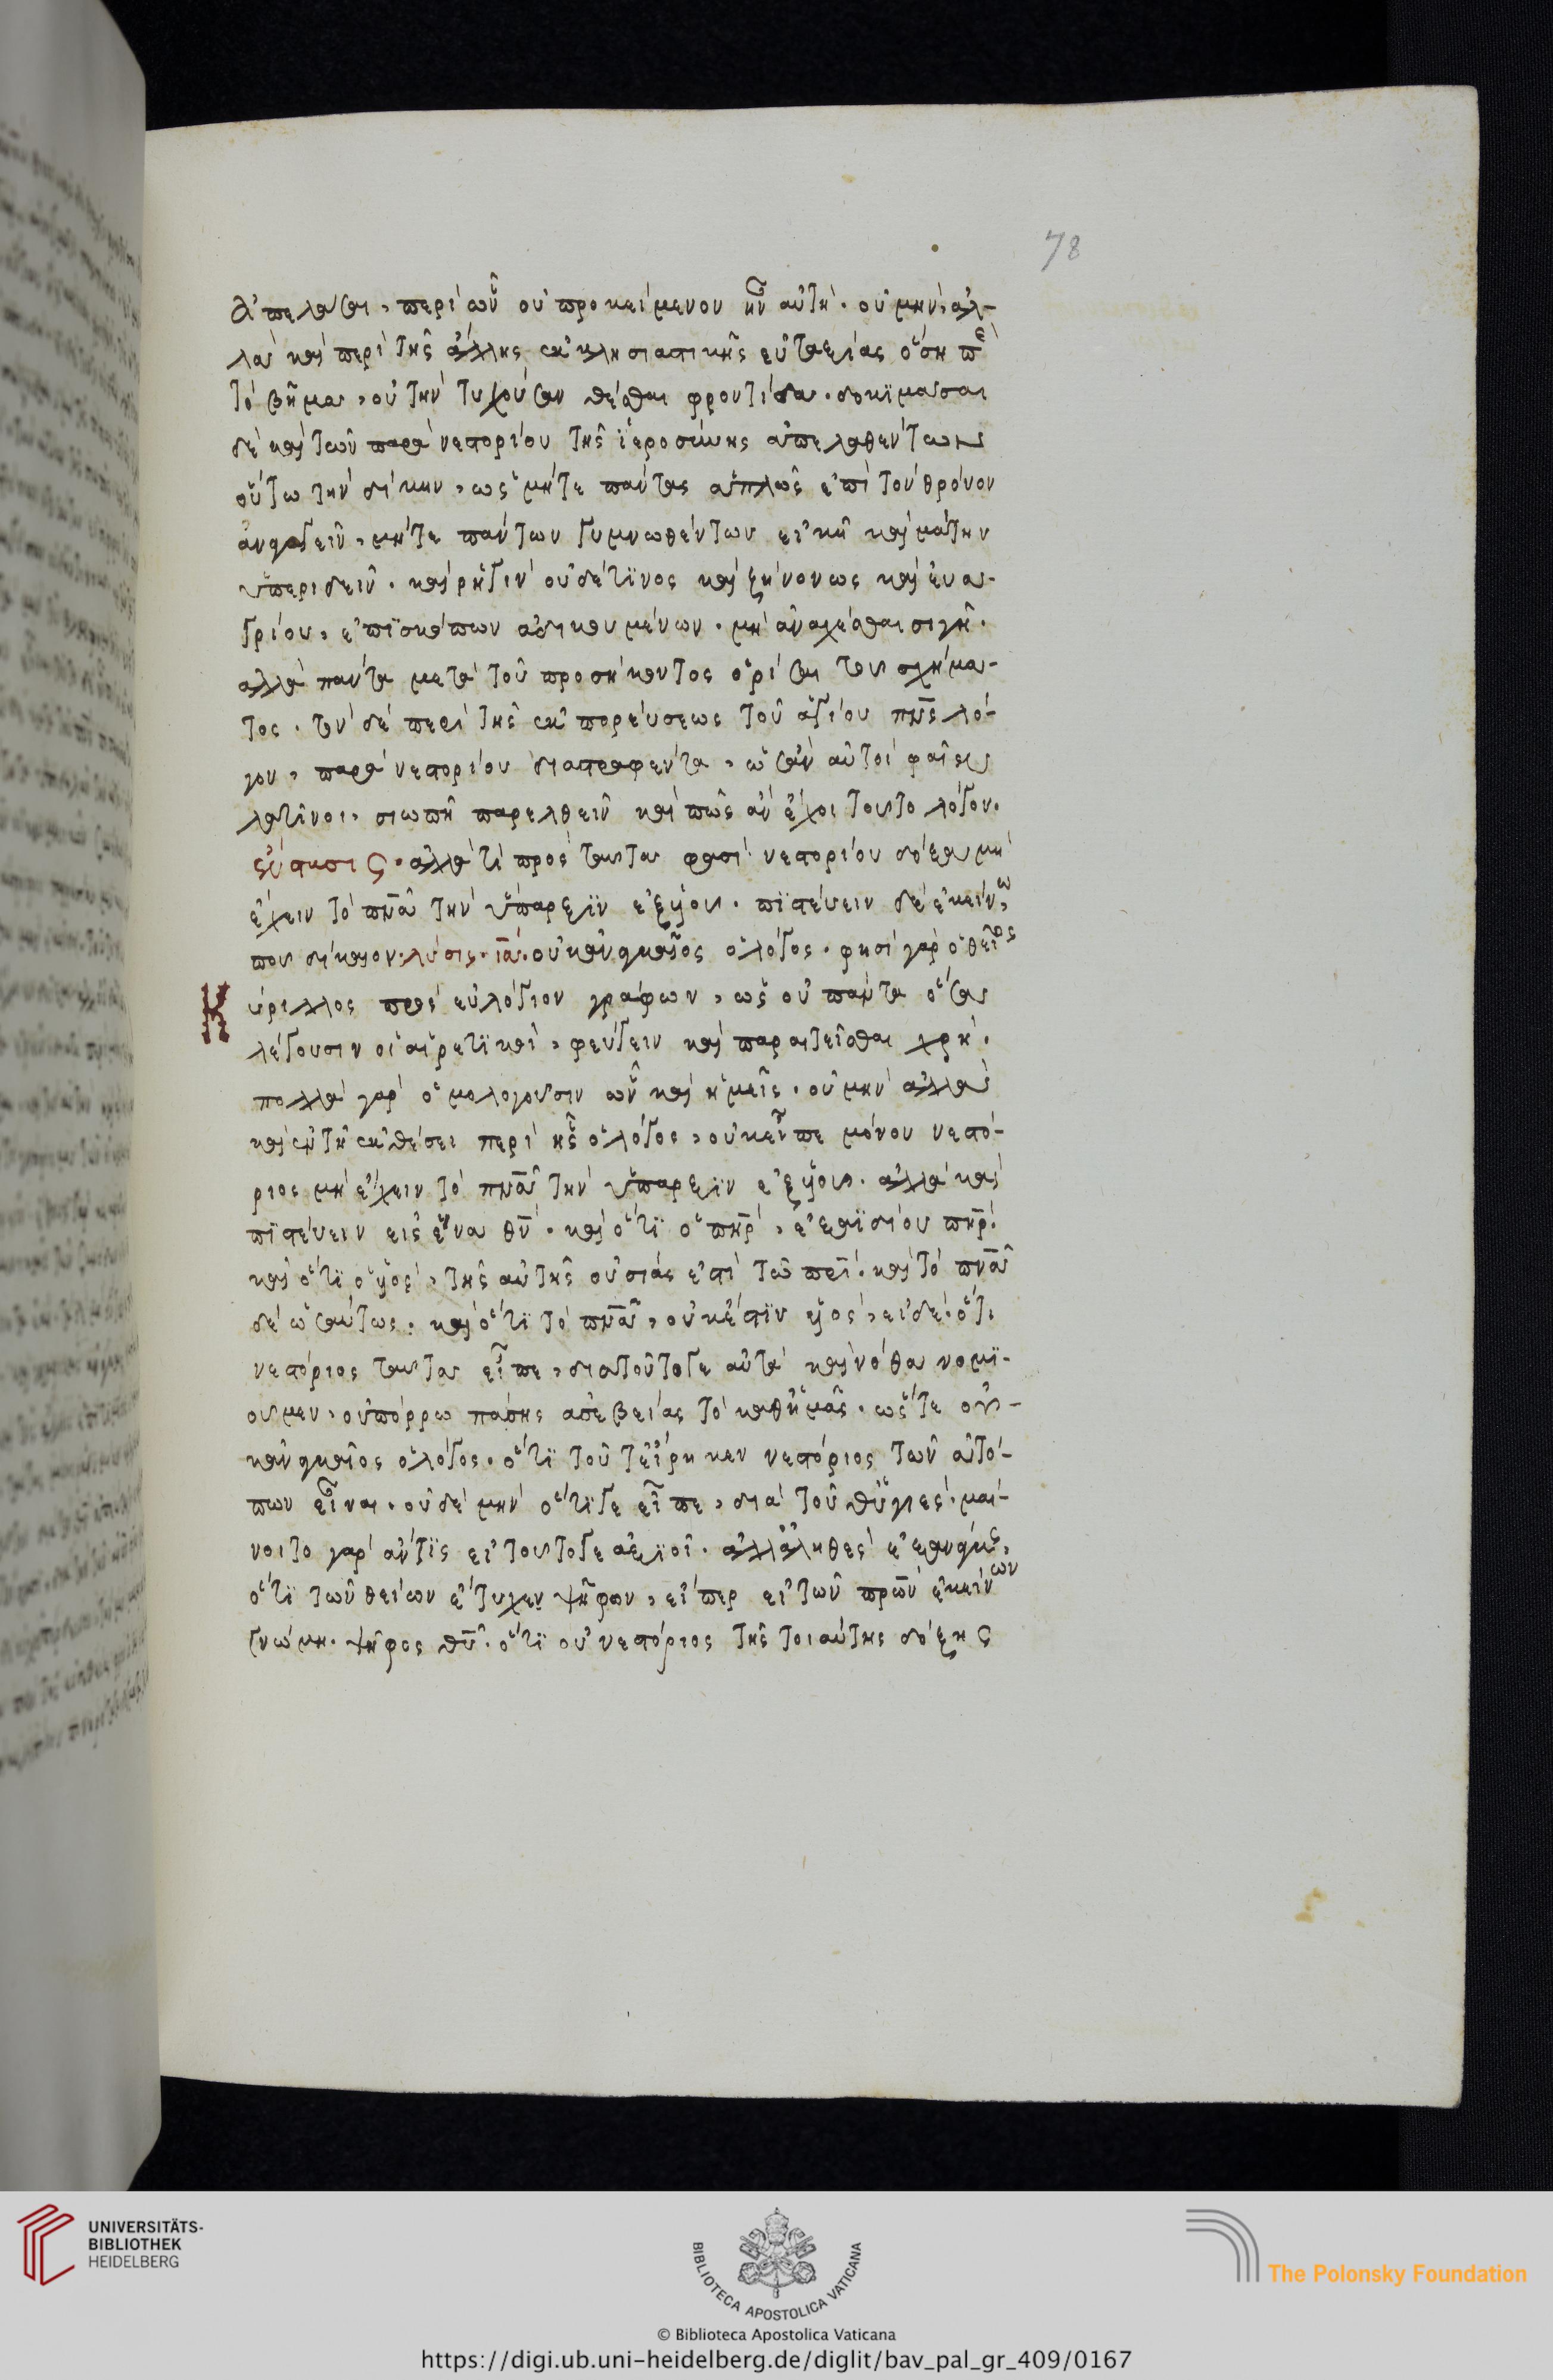 78
ἀπελάσαι, περὶ ὧν οὐ προκείμενον ἦν αὐτῆ. οὐ μὴν, ἀλ-
λὰ καὶ περὶ τῆς ἄλλης ἐκκλησιαστικῆς εὐταξίας ὅση π
τὸ βῆμα, οὐ τὴν τυχοῦσαν θέσθαι φροντίδα. δοκϊμάσαι
δὲ καὶ τῶν παρὰ νεστορίου τῆς ϊεροσύνης ἀπελαθέντων
οὕτω τὴν δίκην, ὡς μήτε πάντας ἁπλῶς ἐπὶ τὸν θρόνον
ἀναγαγεῖν, μήτε πάντων γυμνωθέντων εἰκῆ καὶ μάτην
ὑπεριδεῖν. καὶ ῥηγίνου δέ τϊνος καὶ ζήνονως καὶ ἐυα-
γρίου, ἐπϊσκόπων ἀδικουμένων. μὴ ἀνασχέσθαι σιγῆ.
ἀλλὰ πάντα μετὰ τοῦ προσήκοντος ὁρίσαι του σχήμα-
τος. τὸν δὲ περὶ τῆς ἐκπορεύσεως τοῦ ἁγίου πνς λό-
γον, παρὰ νεστορίου διαστραφέντα, ὡς ἂν αὐτοὶ φαῖεν
λατῖνοι, σιωπῆ παρελθεῖν καὶ πῶς ἂν ἔχοι τουτο λόγον.
ἔνστασις. ἀλλὰ τί πρὸς ταυτα φασὶ νεστορίου δόξα μὴ
ἔχειν τὸ πνα τὴν ὕπαρξϊν ἐξ υἱου. πϊστέυειν δὲ ἐκείνω
που δίκαιον. λύσις. ια. οὐκ ἀναγκαῖος ὁ λόγος. φησὶ γὰρ ὁ θεῖος
Κύριλλος πρὸς εὐλόγιον γράφων, ὡς οὐ πάντα ὅσα
λέγουσιν οἱ αἱρετϊκοὶ, φεύγειν καὶ παραιτεῖσθαι χρή.
πολλὰ γὰρ ὁμολογουσιν ὧν καὶ ἡμεῖς. οὐ μὴν ἀλλὰ
καὶ ἐν τῆ ἐκθέσει περὶ ἧς ὁ λόγος, οὐκ εἶπε μόνον νεστό-
ριος μὴ ἔχειν τὸ πνα τὴν ὕπαρξϊν ἐξ υἱου. ἀλλὰ καὶ
πϊστέυειν εἰς ἕνα θν. καὶ ὅτϊ ὁ πηρ, ἐξ ἀϊδίου πηρ.
καὶ ὅτϊ ὁ υἱὸς, τῆς αὐτῆς οὐσίας ἐστὶ τῶ πρι. καὶ τὸ πνα
δὲ ὡσαύτως. καὶ ὅτϊ τὸ πνα, οὐκ ἔστϊν υἱὸς, εἰ δὲ ὅτι
νεστόριος ταυτα εἶπε, διατοῦτο γε αὐτὰ καὶ νόθα νομϊ-
ουμεν, οὐ πόρρω πάσης ἀσεβείας τὸ καθ' ἡμᾶς. ὥς τε ουκ
ἀναγκαῖος ὁ λόγος. ὅτϊ τοῦτ' εἴρηκεν νεστόριος τῶν ἀτό-
πων εἶναι. οὐδὲ μὴν ὅτϊ γε εἶπε, διὰ τοῦθ' ὑγιές. μαί-
νοιτο γὰρ ἄν τϊς εἰ τουτο γε ἀξϊοῖ. ἀλλ' ἀληθὲς ἐξ ἀνάγκης,
ὅτϊ τῶν θείων ἔτυχεν ψήφων, εἴπερ εἰ τῶν πρων ἐκείνων
γνώμη. ψῆφος θυ. ὅτϊ οὐ νεστόριος τῆς τοιαύτης δόξης
UNIVERSITÄTS-
BIBLIOTHEK
HEIDELBERG
BIBLIOTECA APOSTOLICA VATICANA
The Polonsky Foundation
© Biblioteca Apostolica Vaticana
https://digi.ub.uni-heidelberg.de/diglit/bav_pal_gr_409/0167